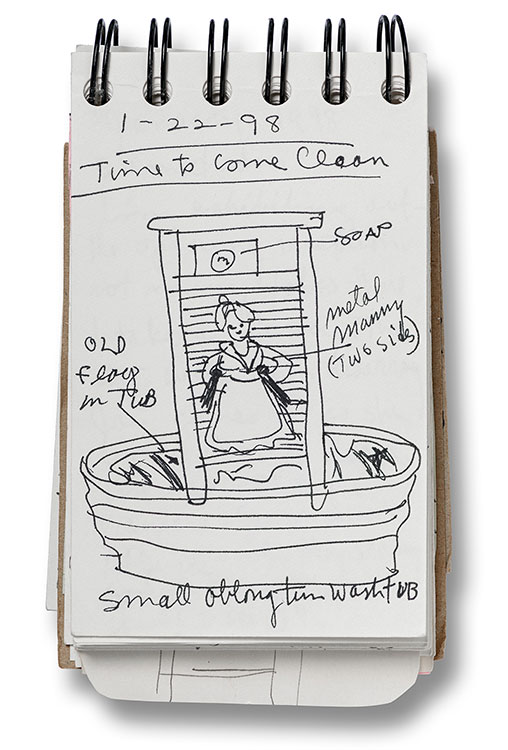 1-22-98
Time to Come Clean
SOAP
metal
Mammy
(TWO Sides)
OLD
Flag
in TUB
Small oblong tin Wash TUB